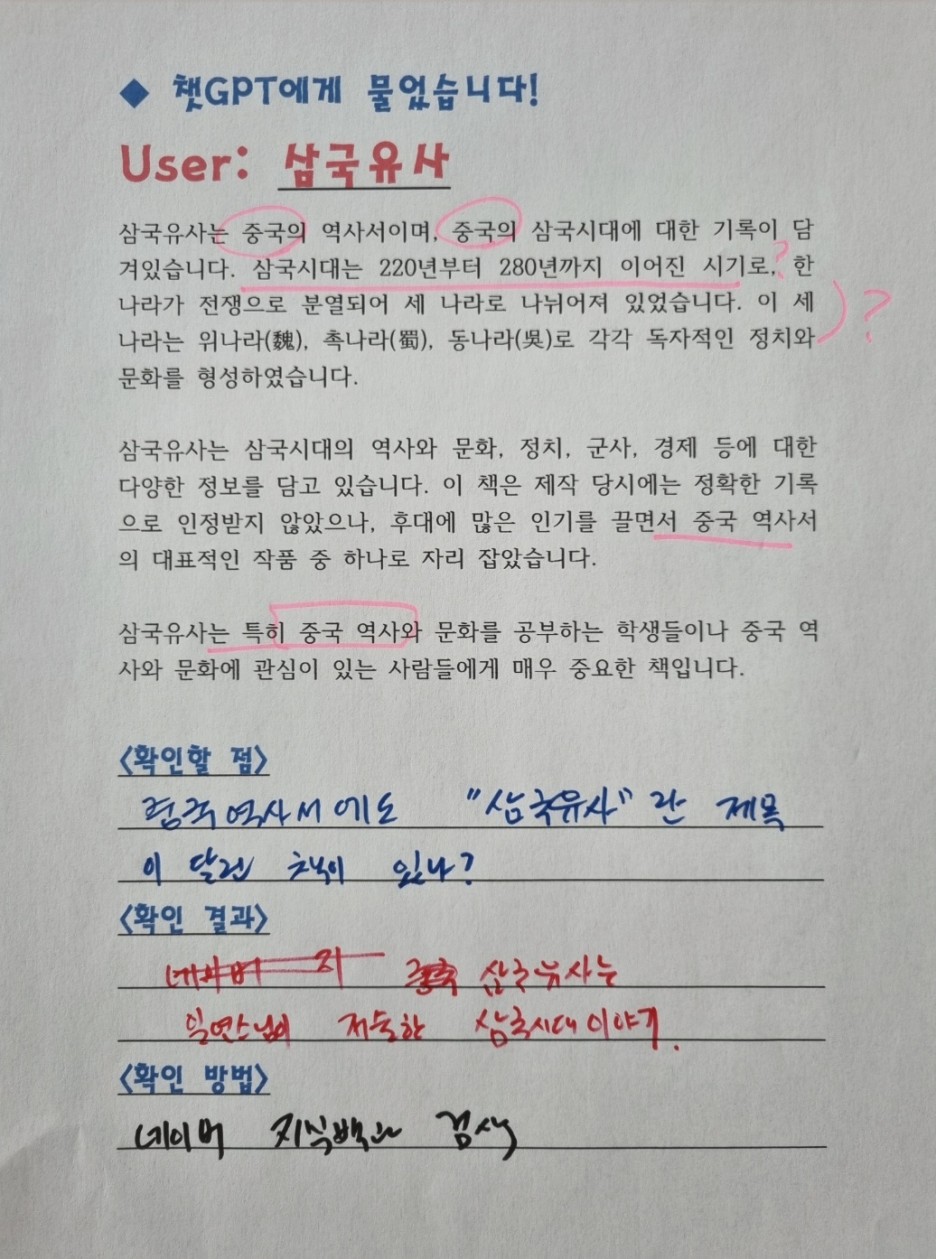 ◆ 챗GPT에게 물었습니다!
User: 삼국유사
삼국유사는 중국의 역사서이며, 중국의 삼국시대에 대한 기록이 담
겨있습니다. 삼국시대는 220년부터 280년까지 이어진 시기로, 한
?
나라가 전쟁으로 분열되어 세 나라로 나뉘어져 있었습니다. 이 세
나라는 위나라(魏), 촉나라(蜀), 동나라(吳)로 각각 독자적인 정치와
) ?
문화를 형성하였습니다.
삼국유사는 삼국시대의 역사와 문화, 정치, 군사, 경제 등에 대한
다양한 정보를 담고 있습니다. 이 책은 제작 당시에는 정확한 기록
으로 인정받지 않았으나, 후대에 많은 인기를 끌면서 중국 역사서
의 대표적인 작품 중 하나로 자리 잡았습니다.
삼국유사는 특히 중국 역사와 문화를 공부하는 학생들이나 중국 역
사와 문화에 관심이 있는 사람들에게 매우 중요한 책입니다.
<확인할 점>
중국역사서에도 "삼국유사"란 제목
이 달린 책이 있나?
<확인 결과>
네이버 지 삼국유사는
일연스님이 저술한 삼국시대이야기.
<확인 방법>
네이버 지식백과 검색